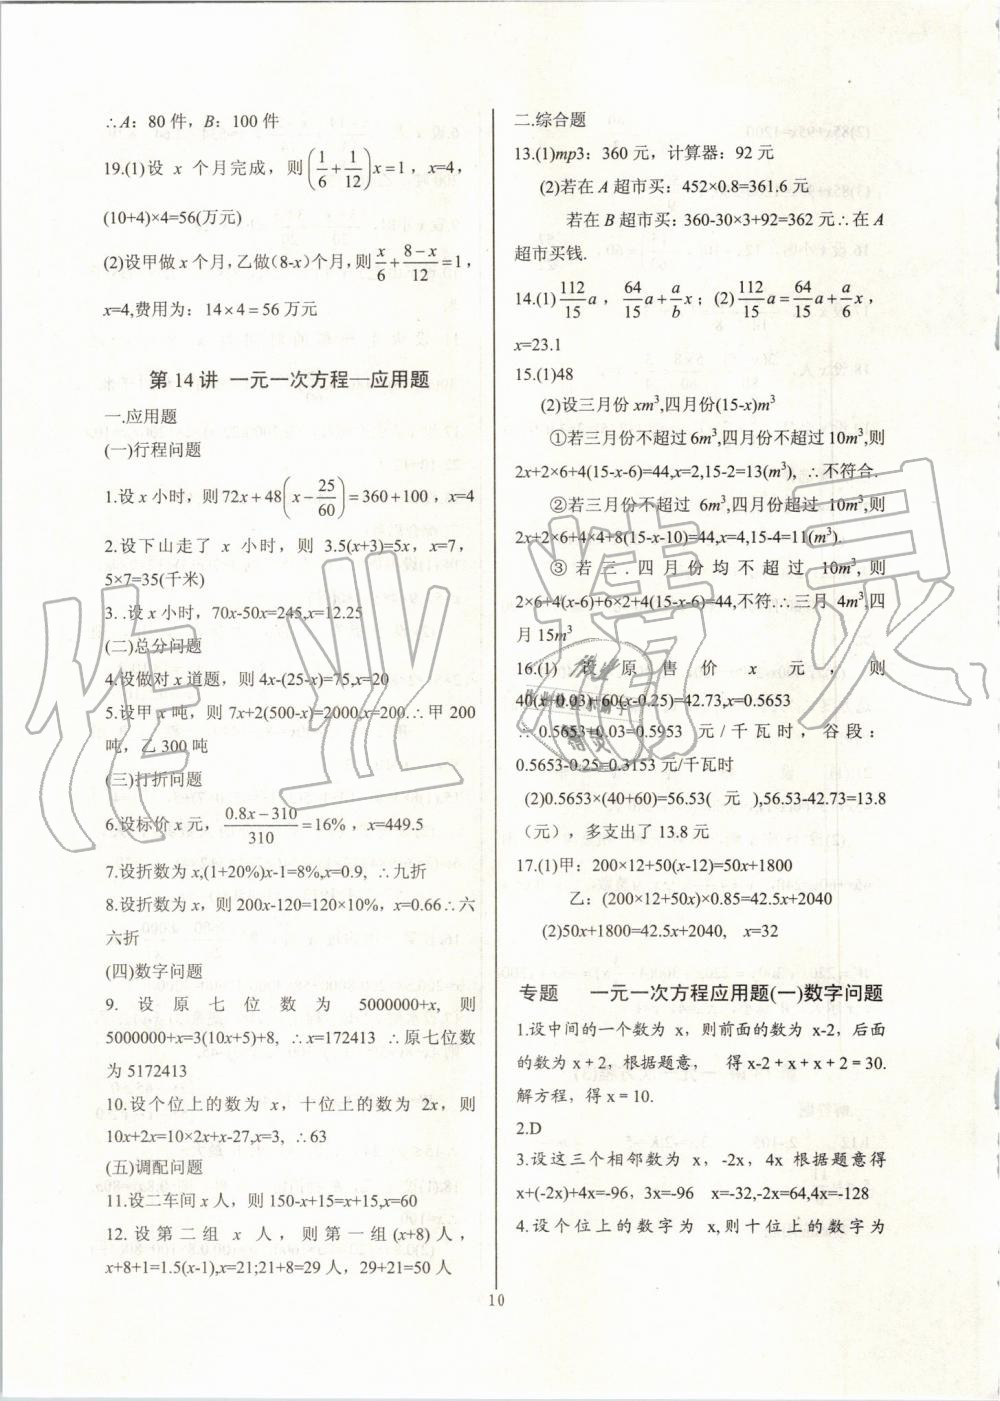 ∴A：80 件，B：100 件
19.(1)设 x 个月完成，则(1/6+1/12)x=1，x=4，
(10+4)×4=56(万元)
(2)设甲做 x 个月,乙做（8-x）个月,则x/6+8-x/12=1，
x=4,费用为：14×4=56 万元
第 14 讲 一元一次方程—应用题
一.应用题
(一)行程问题
1.设 x 小时，则72x+48(x-25/60)=360+100，x=4
2.设下山走了 x 小时，则 3.5(x+3)=5x，x=7，
5×7=35(千米)
3. .设 x 小时，70x-50x=245,x=12.25
(二)总分问题
4.设做对 x 道题，则 4x-(25-x)=75,x=20
5.设甲 x 吨，则 7x+2(500-x)=2000,x=200.∴甲 200
吨，乙 300 吨
(三)打折问题
6.设标价 x 元，0.8x-310/310=16%，x=449.5
7.设折数为 x,(1+20%)x-1=8%,x=0.9, ∴九折
8.设折数为 x，则 200x-120=120×10%，x=0.66∴六
六折
(四)数字问题
9. 设原七位数为 5000000+x, 则
5000000+x=3(10x+5)+8, ∴x=172413 ∴原七位数
为 5172413
10.设个位上的数为 x，十位上的数为 2x，则
10x+2x=10×2x+x-27,x=3, ∴63
(五)调配问题
11.设二车间 x 人，则 150-x+15=x+15,x=60
12.设第二组 x 人，则第一组(x+8)人，
x+8+1=1.5(x-1),x=21;21+8=29 人，29+21=50 人
二.综合题
13.(1)mp3：360 元，计算器：92 元
(2)若在 A 超市买：452×0.8=361.6 元
若在 B 超市买：360-30×3+92=362 元∴在 A
超市买钱.
14.(1)112/15a，64/15a+a/bx；(2)112/15a=64/15a+a/6x，
x=23.1
15.(1)48
(2)设三月份 xm³,四月份(15-x)m³
①若三月份不超过 6m³,四月份不超过 10m³,则
2x+2×6+4(15-x-6)=44,x=2,15-2=13(m³), ∴不符合.
②若三月份不超过 6m³,四月份超过 10m³,则
2x+2×6+4×4+8(15-x-10)=44,x=4,15-4=11(m³).
③若三.四月份均不超过 10m³,则
2×6+4(x-6)+6×2+4(15-x-6)=44,不符.∴三月 4m³,四
月 15m³
16.(1) 设原售价 x 元，则
40(x+0.03)+60(x-0.25)=42.73,x=0.5653
∴0.5653+0.03=0.5953 元/千瓦时，谷段：
0.5653-0.25=0.3153 元/千瓦时
(2)0.5653×(40+60)=56.53( 元 ),56.53-42.73=13.8
（元），多支出了 13.8 元
17.(1)甲：200×12+50(x-12)=50x+1800
乙：(200×12+50x)×0.85=42.5x+2040
(2)50x+1800=42.5x+2040, x=32
专题 一元一次方程应用题(一)数字问题
1.设中间的一个数为 x，则前面的数为 x-2，后面
的数为 x＋2，根据题意， 得 x-2＋x＋x＋2＝30.
解方程，得 x＝10.
2.D
3.设这三个相邻数为 x，-2x，4x 根据题意得
x+(-2x)+4x=-96，3x=-96 x=-32,-2x=64,4x=-128
4.设个位上的数字为 x,则十位上的数字为
10
作业精灵